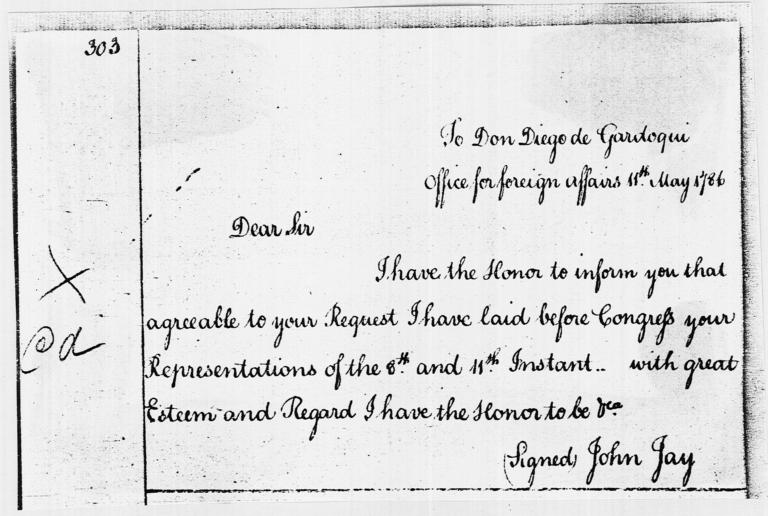 303
To Don Diego de Gardoqui
Office for foreign affairs 11th May 1786
Dear Sir
I have the Honor to inform you that
agreeable to your Request I have laid before Congress your
Representations of the 8th and 11th Instant.. with great
Esteem and Regard I have the Honor to be &ca
(Signed) John Jay